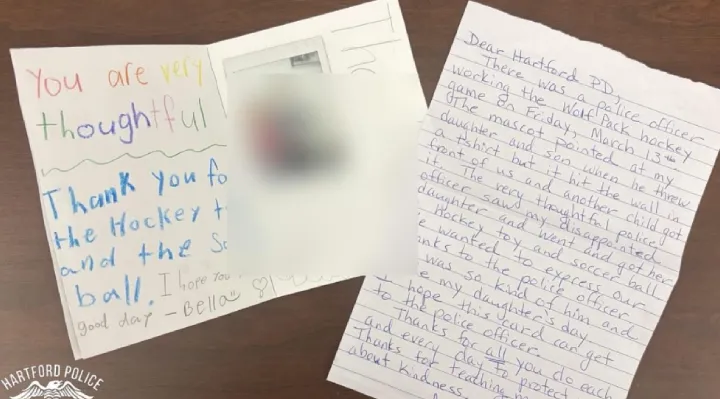 You are very
thoughtful
Thank you fo
the Hockey t
and the So
ball. I hope you
good day - Bella
Dear Hartford PD,
There was a police officer
working the Wolf Pack hockey
game on Friday, March 13th
The mascot pointed at my
daughter and son when he threw
a tshirt but it hit the wall in
front of us and another child got
it. The very thoughtful police
officer saw my disappointed
daughter and went and got her
Hockey toy and soccer ball
e wanted to express our
nks to the police officer
was so kind of him and
e my daughter's day.
I hope this card can get
to the police officer.
Thanks for all you do each
and every day to protect
Thanks for teaching m
about kindness.
HARTFORD POLICE